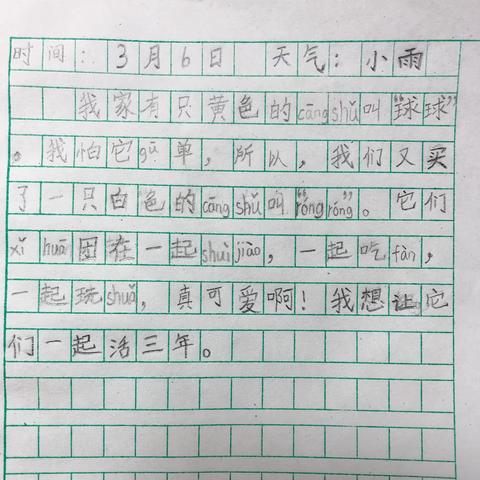 时间：3月6日 天气：小雨
我家有只黄色的cāngshǔ叫“球球”
。我怕它gū单，所以，我们又买
了一只白色的cāngshǔ叫“róngróng”。它们
xǐhuān团在一起shuìjiào，一起吃fàn，
一起玩shuǎ，真可爱啊！我想让它
们一起活三年。